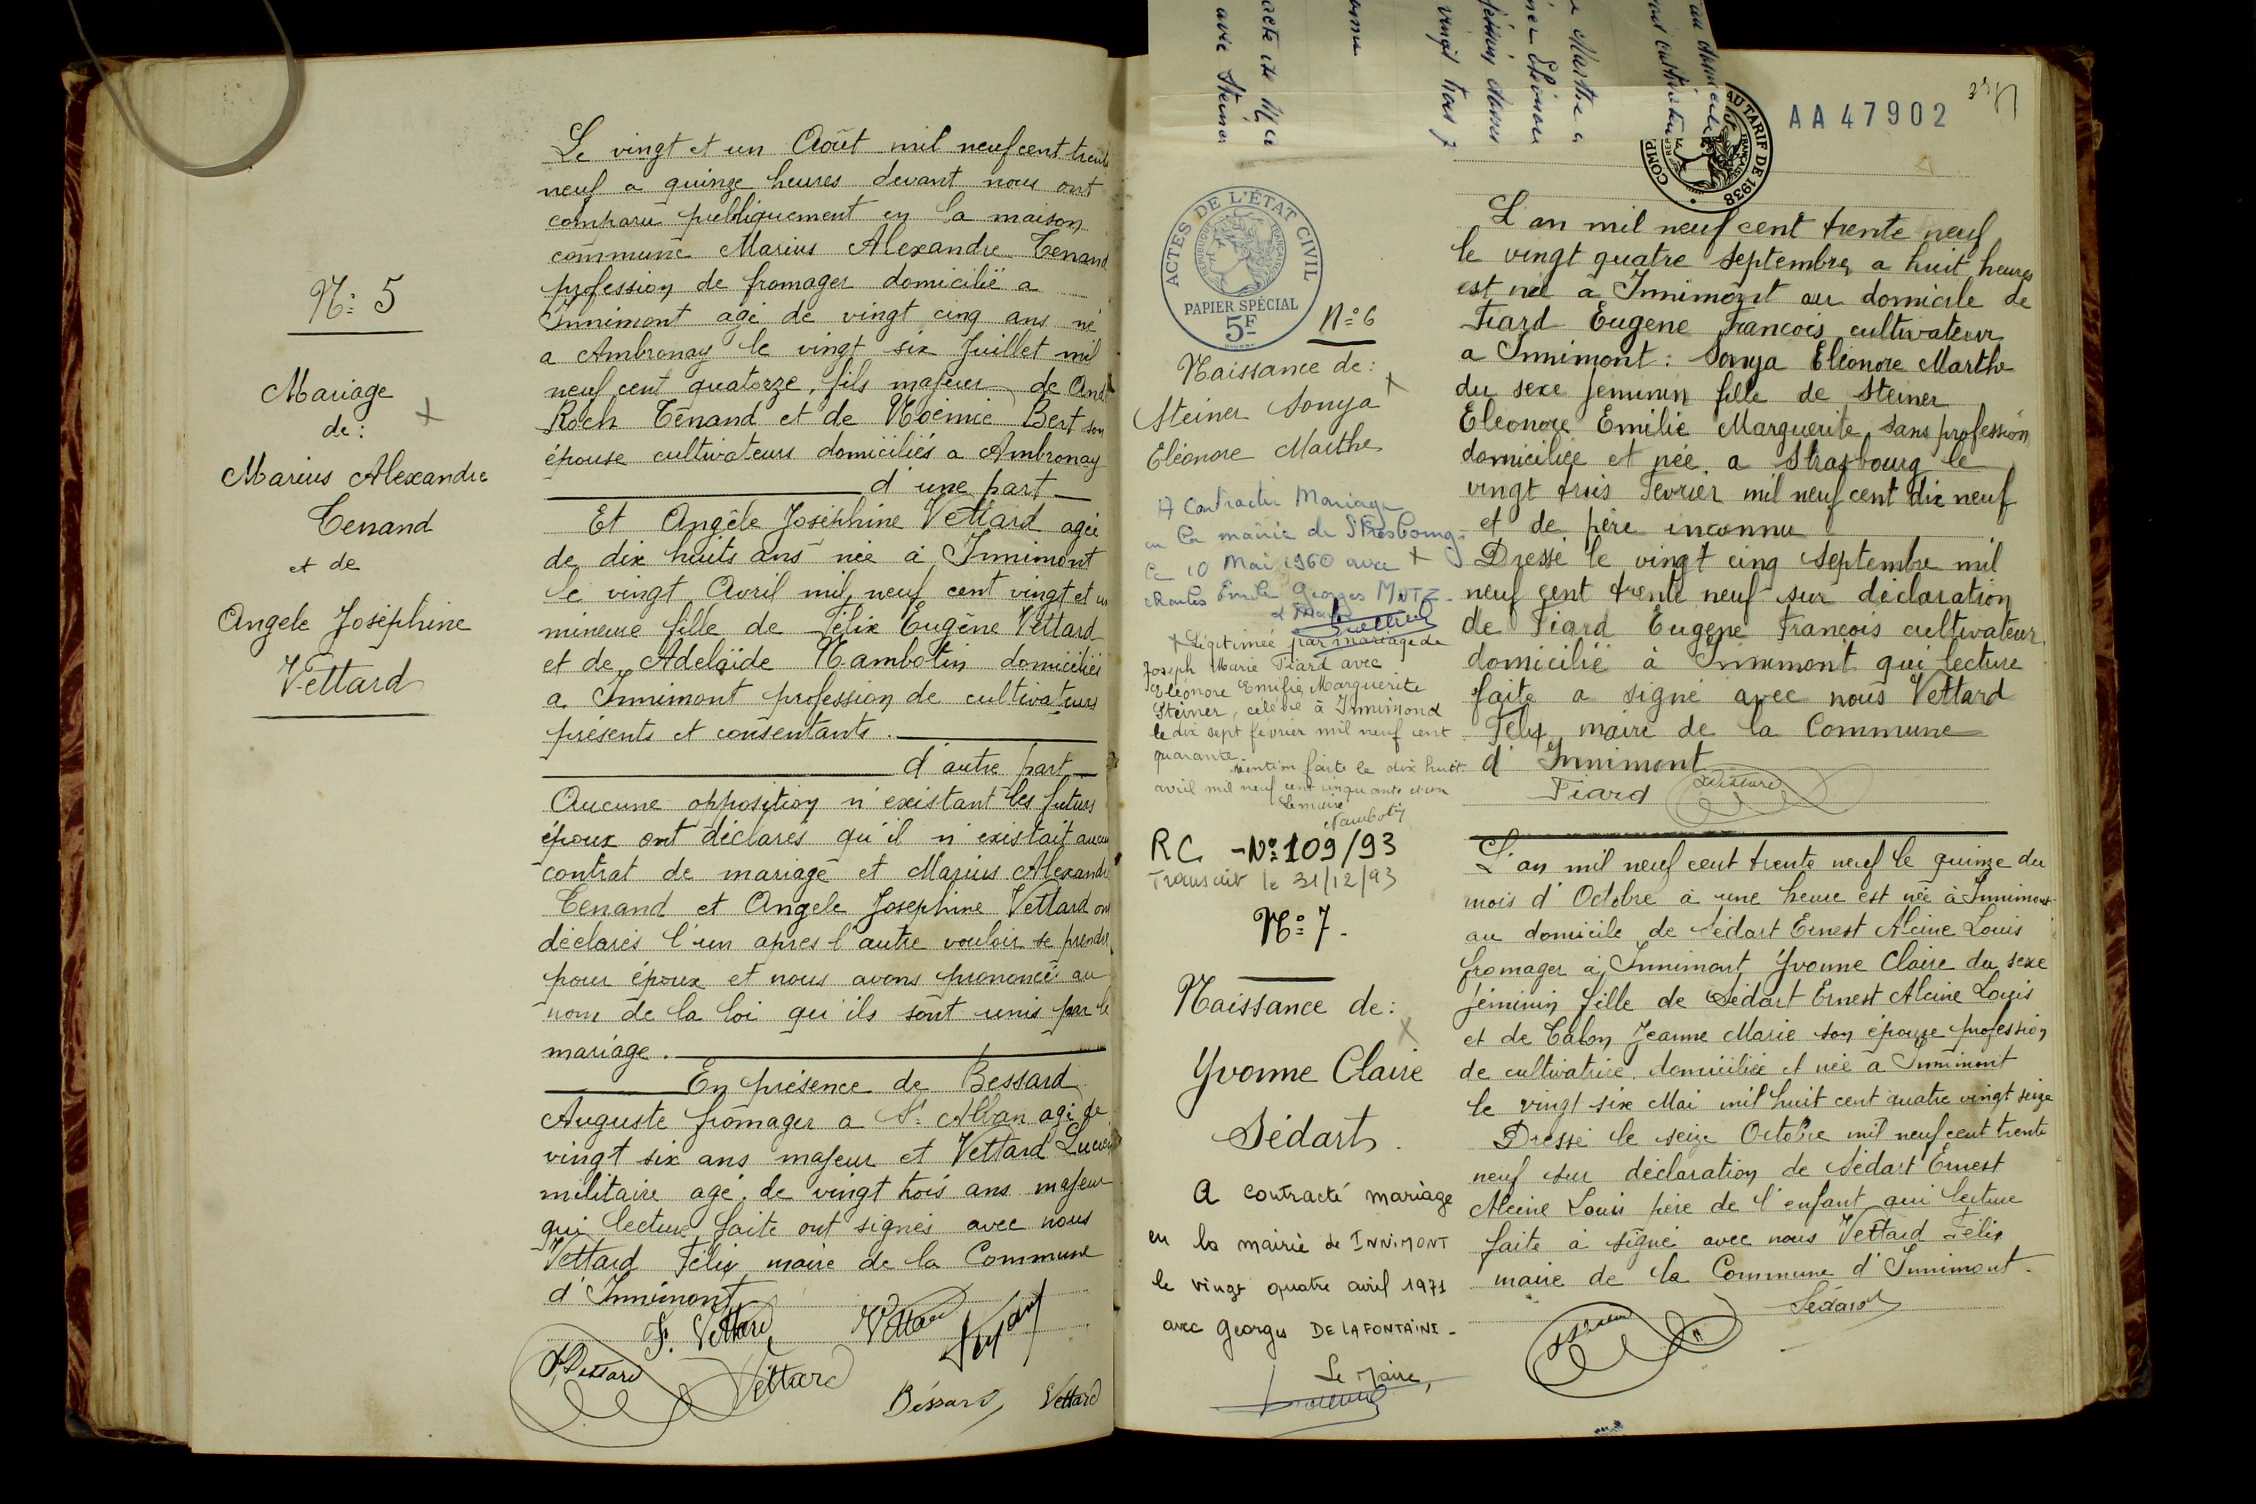 N: 5
Mariage
de:
Marius Alexandre
Tenand
et de
Angele Joséphine
Vettard
Le vingt et un Août mil neuf cent trente
neuf a quinze heures devant nous ont
comparu publiquement en la maison
commune Marius Alexandre Tenand
profession de fromager domicilié a
Innimont agé de vingt cinq ans né
a Ambronay le vingt six Juillet mil
neuf cent quatorze, fils majeur de
Roch Tenand et de Noémie Bert son
épouse cultivateurs domiciliés a Ambronay
d'une part
Et Angèle Joséphine Vettard agée
de dix huits ans née à Innimont
le vingt Avril mil neuf cent vingt et un
mineure fille de Félix Eugène Vettard
et de Adelaïde Nambotin domiciliés
a Innimont profession de cultivateurs
présents et consentants.
d'autre part
Aucune opposition n'existant les futurs
époux ont déclarés qu'il n'existait aucun
contrat de mariage et Marius Alexandre
Tenand et Angele Josephine Vettard ont
déclarés l'un apres l'autre vouloir se prendre
pour époux et nous avons prononcé au
nom de la loi qu'ils sont unis par le
mariage.
En présence de Bessard
Auguste fromager a St Alban agé de
vingt six ans majeur et Vettard Lucien
militaire agé de vingt trois ans majeur
qui lecture faite ont signés avec nous
Vettard Félix maire de la Commune
d'Innimont
F. Vettard
Vettard
Vettard
Béssard
Vettard
AA 47902
AU TARIF DE 1938
ACTES DE L'ÉTAT CIVIL
PAPIER SPÉCIAL
5F
N:o 6
Naissance de:
Steiner Sonya
Eléonore Marthe
A Contracter Mariage
en la mairie de Strasbourg
le 10 Mai 1960 avec
Charles Emile Georges MUTZ
Légitimée par mariage de
Joseph Marie Tiard avec
Eléonore Emilie Marguerite
Steiner, célébré à Innimond
le dix sept février mil neuf cent
quarante
mention faite le dix huit
avril mil neuf cent cinquante et un
Le maire
R.C. - No: 109/93
Transcit le 31/12/93
L'an mil neuf cent trente neuf
le vingt quatre Septembre a huit heures
est née à Innimont au domicile de
Tiard Eugene Francois cultivateur
a Innimont: Sonya Eléonore Marthe
du sexe feminin fille de Steiner
Eléonore Emilie Marguerite sans profession
domiciliée et née a Strasbourg le
vingt trois Fevrier mil neuf cent dix neuf
et de père inconnu
Dressé le vingt cinq Septembre mil
neuf cent trente neuf sur déclaration
de Tiard Eugene François cultivateur
domicilié à Innimont qui lecture
faite a signé avec nous Vettard
Félix maire de la Commune
d'Innimont
Tiard
N:o 7.
Naissance de:
Yvonne Claire
Sédart.
A contracté mariage
en la mairie de INNIMONT
le vingt quatre avril 1971
avec Georges DE LA FONTAINE.
Le Maire,
L'an mil neuf cent trente neuf le quinze du
mois d'Octobre à une heure est née à Innimont
au domicile de Sédart Ernest Alcine Louis
fromager à Innimont Yvonne Claire du sexe
féminin fille de Sédart Ernest Alcine Louis
et de Talon Jeanne Marie son épouse profession
de cultivatrice domiciliée et née à Innimont
le vingt six Mai mil huit cent quatre vingt seize
Dressé le seize Octobre mil neuf cent trente
neuf sur déclaration de Sédart Ernest
Alcine Louis père de l'enfant qui lecture
faite a signé avec nous Vettard Félix
maire de la Commune d'Innimont.
Sédart